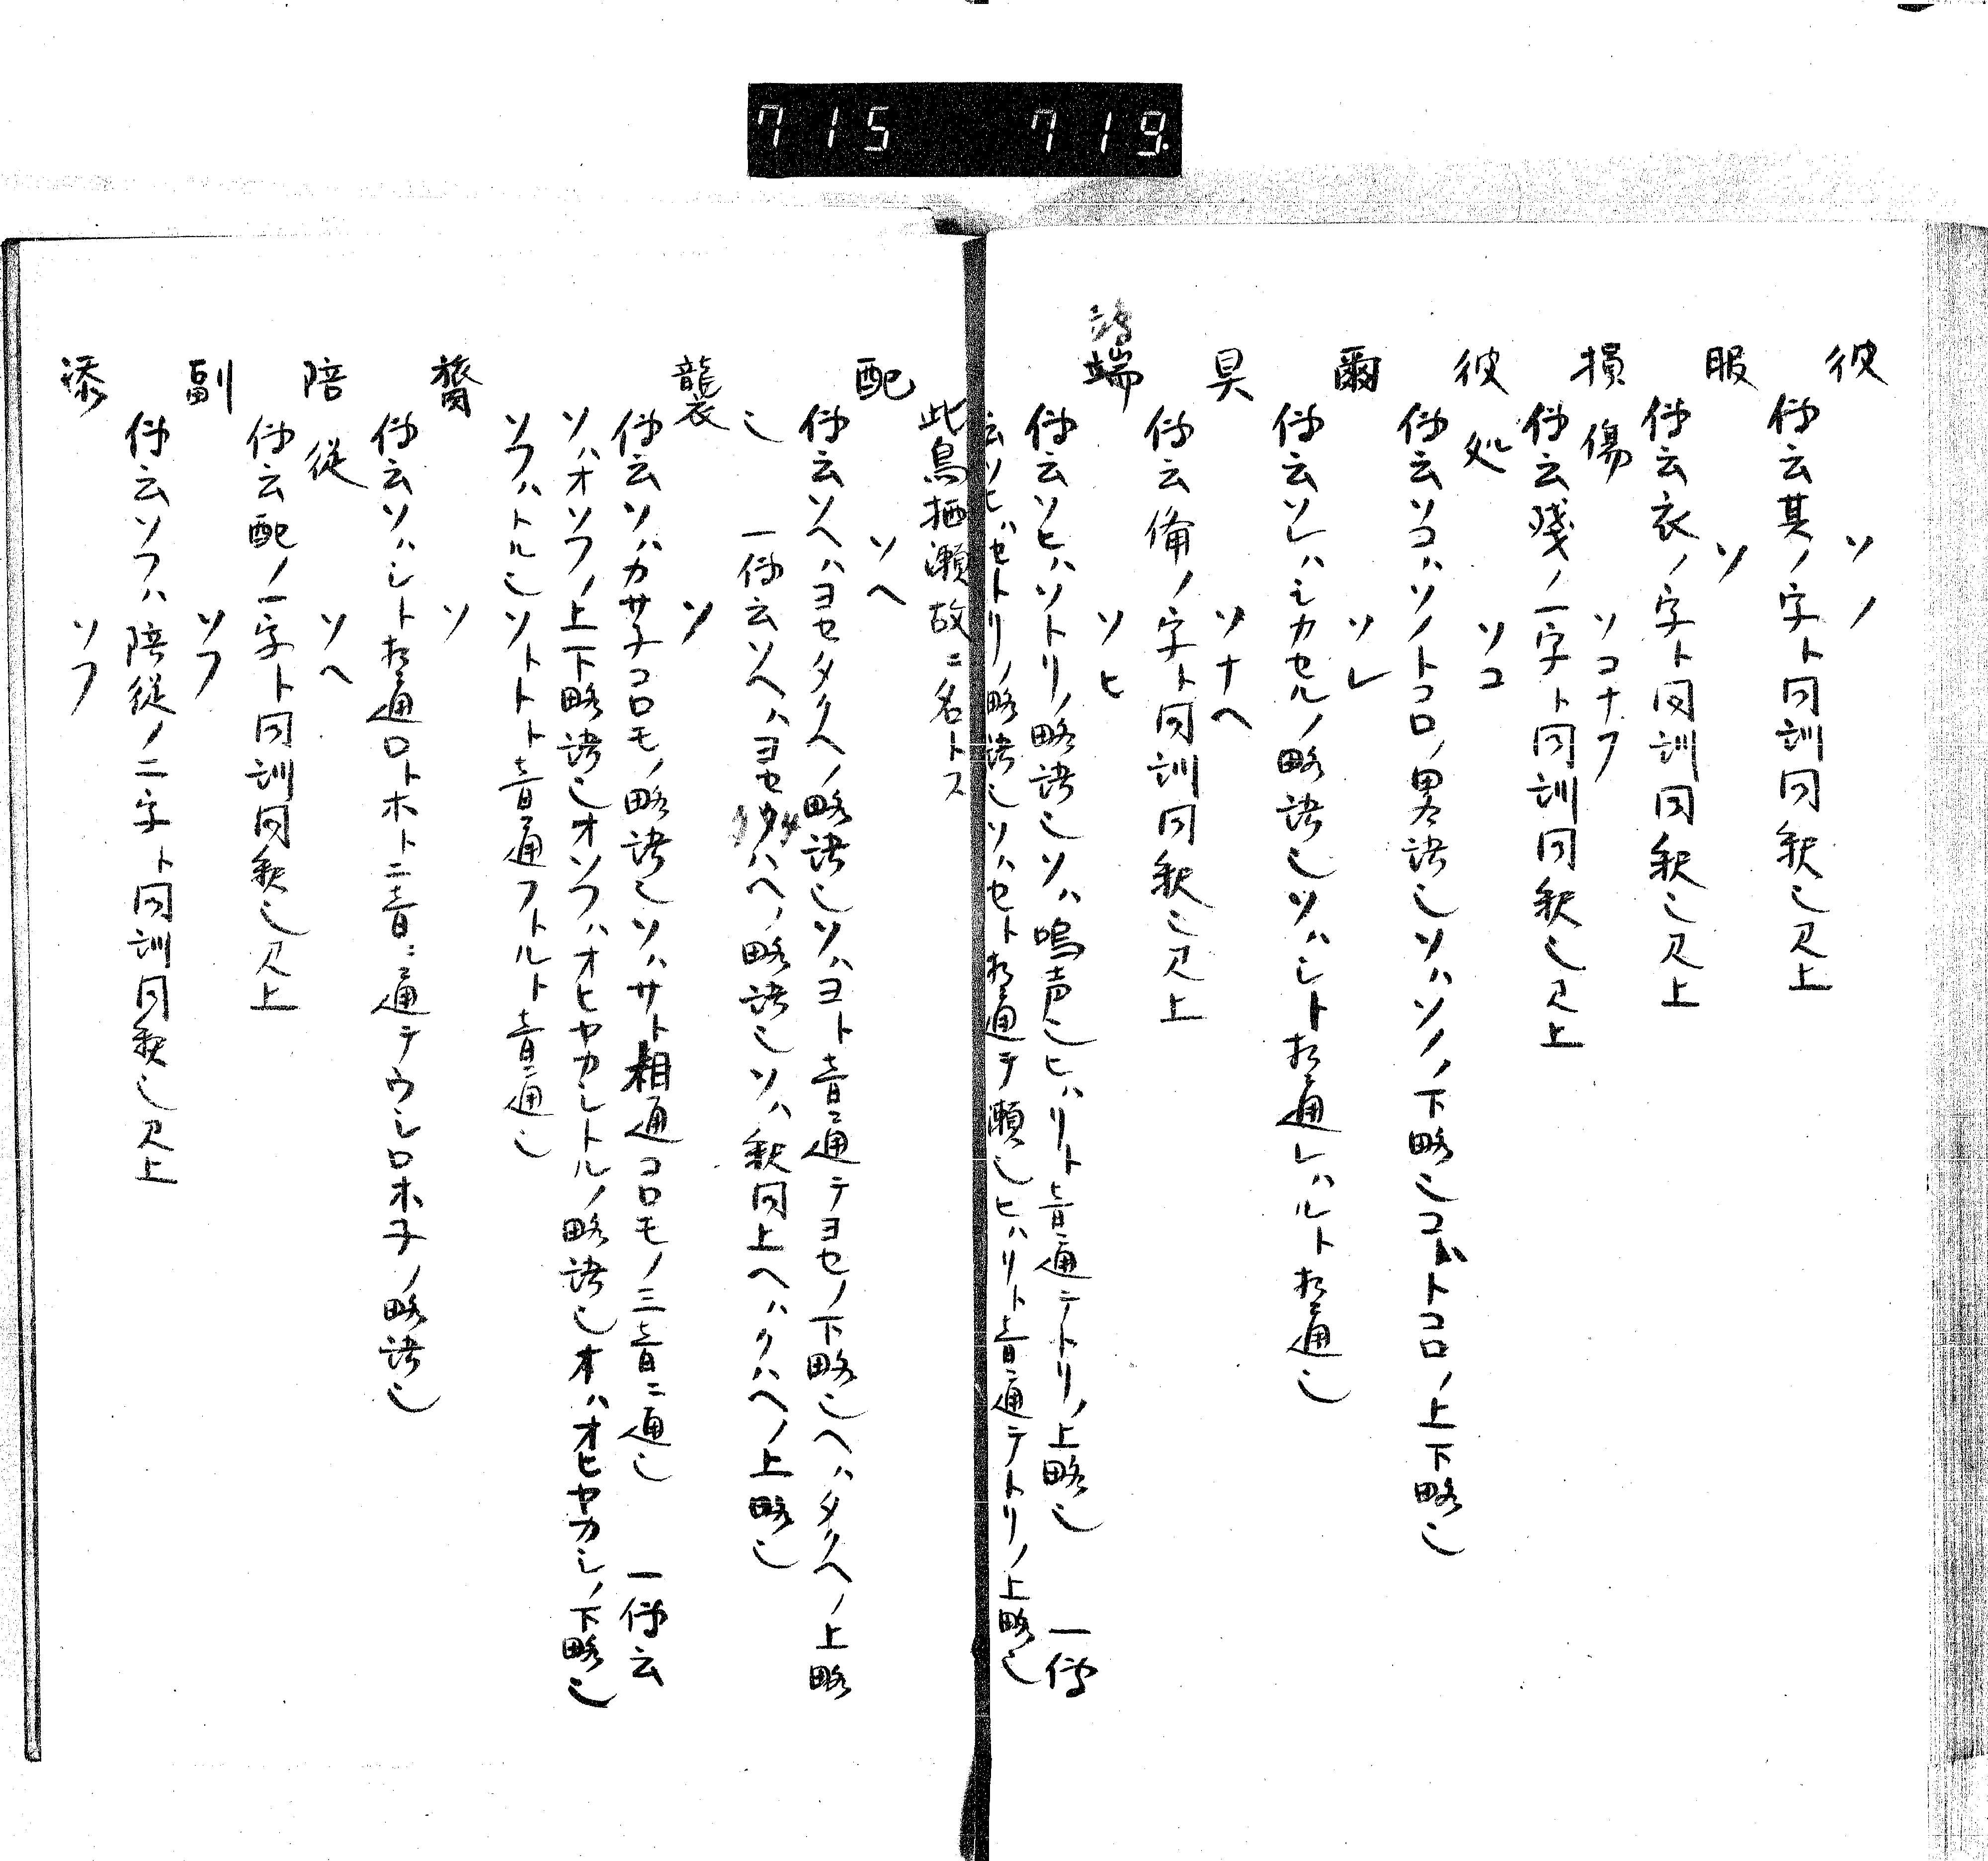 715 719.
彼 ソノ
傳云其ノ字ト同訓同釈也見上
服 ソ
傳云衣ノ字ト同訓同釈也見上
損傷 ソコナフ
傳云残ノ一字ト同訓同釈也見上
彼処 ソコ
傳云ソコハソノトコロノ畧語也ソハソノノ下略也コハトコロノ上下略也
爾 ソレ
傳云ソレハシカセルノ略語也ソハシト相通レハルト相通也
具 ソナヘ
傳云備ノ字ト同訓同釈也見上
ソヒ
傳云ソヒハソトリノ略語也ソハ鳴声也ヒハリト音通ニテトリノ上略也 一傳
云ソヒハセトリノ略語也ソハセト相通テ瀬也ヒハリト音通テトリノ上略也
此鳥栖瀬故ニ名トス
配 ソヘ
傳云ソヘハヨセタクヘノ略語也ソハヨト音通テヨセノ下略也ヘハタクヘノ上略
也 一傳云ソヘハヨセクハヘノ略語也ソハ釈同上ヘハクハヘノ上略也
襲 ソ
傳云ソハカサ子コロモノ略語也ソハサト相通コロモノ三音ニ通也 一傳云
ソハオソフノ上下略語也オソフハオヒヤカシトルノ略語也オハオヒヤカシノ下略也
ソフハトル也ソトトト音通フトルト音通也
膂 ソ
傳云ソハシト相通ロトホト二音ニ通テウシロホ子ノ略語也
陪従 ソヘ
傳云配ノ一字ト同訓同釈也見上
副 ソフ
傳云ソフハ陪従ノ二字ト同訓同釈也見上
添 ソフ